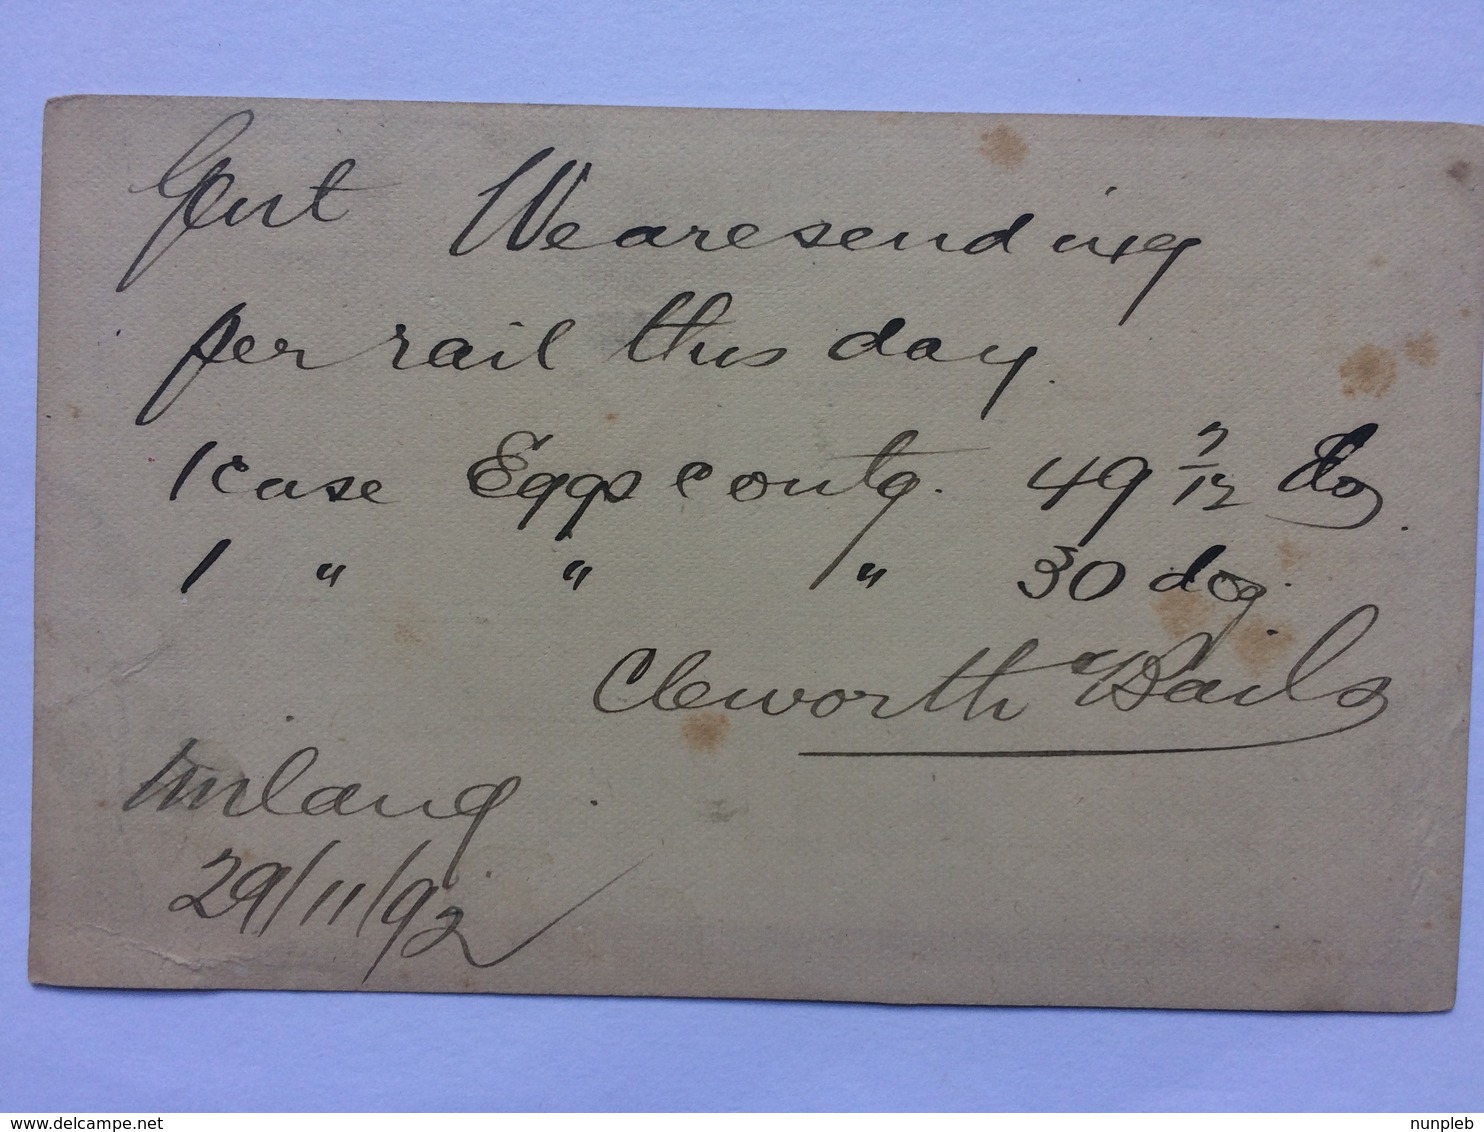 Gent We are sending
per rail this day.
1 case Eggs contg. 49 7/12 doz.
1 " " " 30 doz.
Cleworth
Milang
29/11/92
delcampe.net
nunpleb